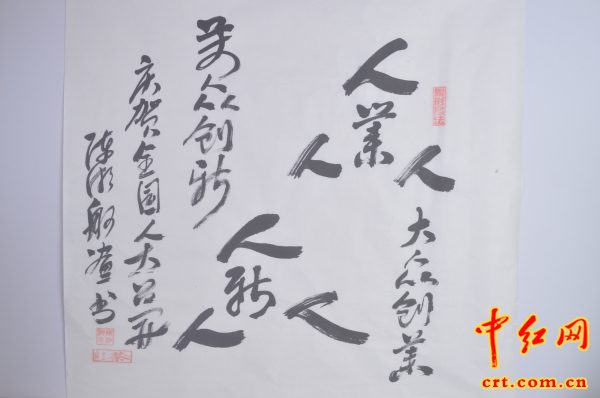 大众创業
人
業
人
人
人
新
人
人
萬众创新
庆贺全国人大召開
书
中红网
crt.com.cn